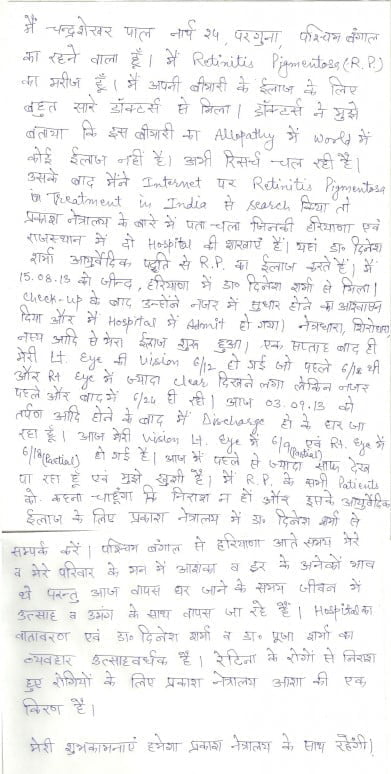 मैं चन्द्रशेखर पाल नार्थ 24, परगुना, पश्चिम बंगाल
का रहने वाला हूँ। मैं Retinitis Pigmentosa (R.P.)
का मरीज हूँ। मैं अपनी बीमारी के ईलाज के लिए
बहुत सारे डॉक्टर्स से मिला। डॉक्टर्स ने मुझे
बताया कि इस बीमारी का Allopathy में World में
कोई ईलाज नहीं है। अभी रिसर्च चल रही है।
उसके बाद मैंने Internet पर Retinitis Pigmentosa
in Treatment in India से search किया तो
प्रकाश नेत्रालय के बारे में पता चला जिनकी हरियाणा एवं
राजस्थान में दो Hospital की शाखाएं हैं। यहां डा० दिनेश
शर्मा आयुर्वेदिक पद्धति से R.P. का ईलाज करते हैं। मैं
15.08.13 को जीन्द, हरियाणा में डा० दिनेश शर्मा से मिला।
Check-up के बाद उन्होंने नजर में सुधार होने का आश्वासन
दिया और मैं Hospital में Admit हो गया। नेत्रधारा, शिरोधारा,
नस्य आदि से मेरा ईलाज शुरू हुआ। एक सप्ताह बाद ही
मेरी Lt. Eye की Vision 6/12 हो गई जो पहले 6/18 थी
और Rt Eye में ज्यादा clear दिखने लगा लेकिन नजर
पहले और बाद में 6/24 ही रही। आज 03.09.13 को
तर्पण आदि होने के बाद मैं Discharge हो के घर जा
रहा हूँ। आज मेरी vision Lt. Eye में 6/9 (Partial) एवं Rt. Eye में
6/18 (Partial) हो गई है। आज मैं पहले से ज्यादा साफ देख
पा रहा हूँ एवं मुझे खुशी है। मैं R.P. के सभी Patients
को कहना चाहूंगा कि निराश न हों और इसके आयुर्वेदिक
ईलाज के लिए प्रकाश नेत्रालय में डा० दिनेश शर्मा से
सम्पर्क करें। पश्चिम बंगाल से हरियाणा आते समय मेरे
व मेरे परिवार के मन में आशंका व डर के अनेकों भाव
थे परन्तु आज वापस घर जाने के समय जीवन में
उत्साह व उमंग के साथ वापस जा रहे हैं। Hospital का
वातावरण एवं डा० दिनेश शर्मा व डा० पूजा शर्मा का
व्यवहार उत्साहवर्धक है। रेटिना के रोगों से निराश
हुए रोगियों के लिए प्रकाश नेत्रालय आशा की एक
किरण है।
मेरी शुभकामनाएं हमेशा प्रकाश नेत्रालय के साथ रहेंगी।